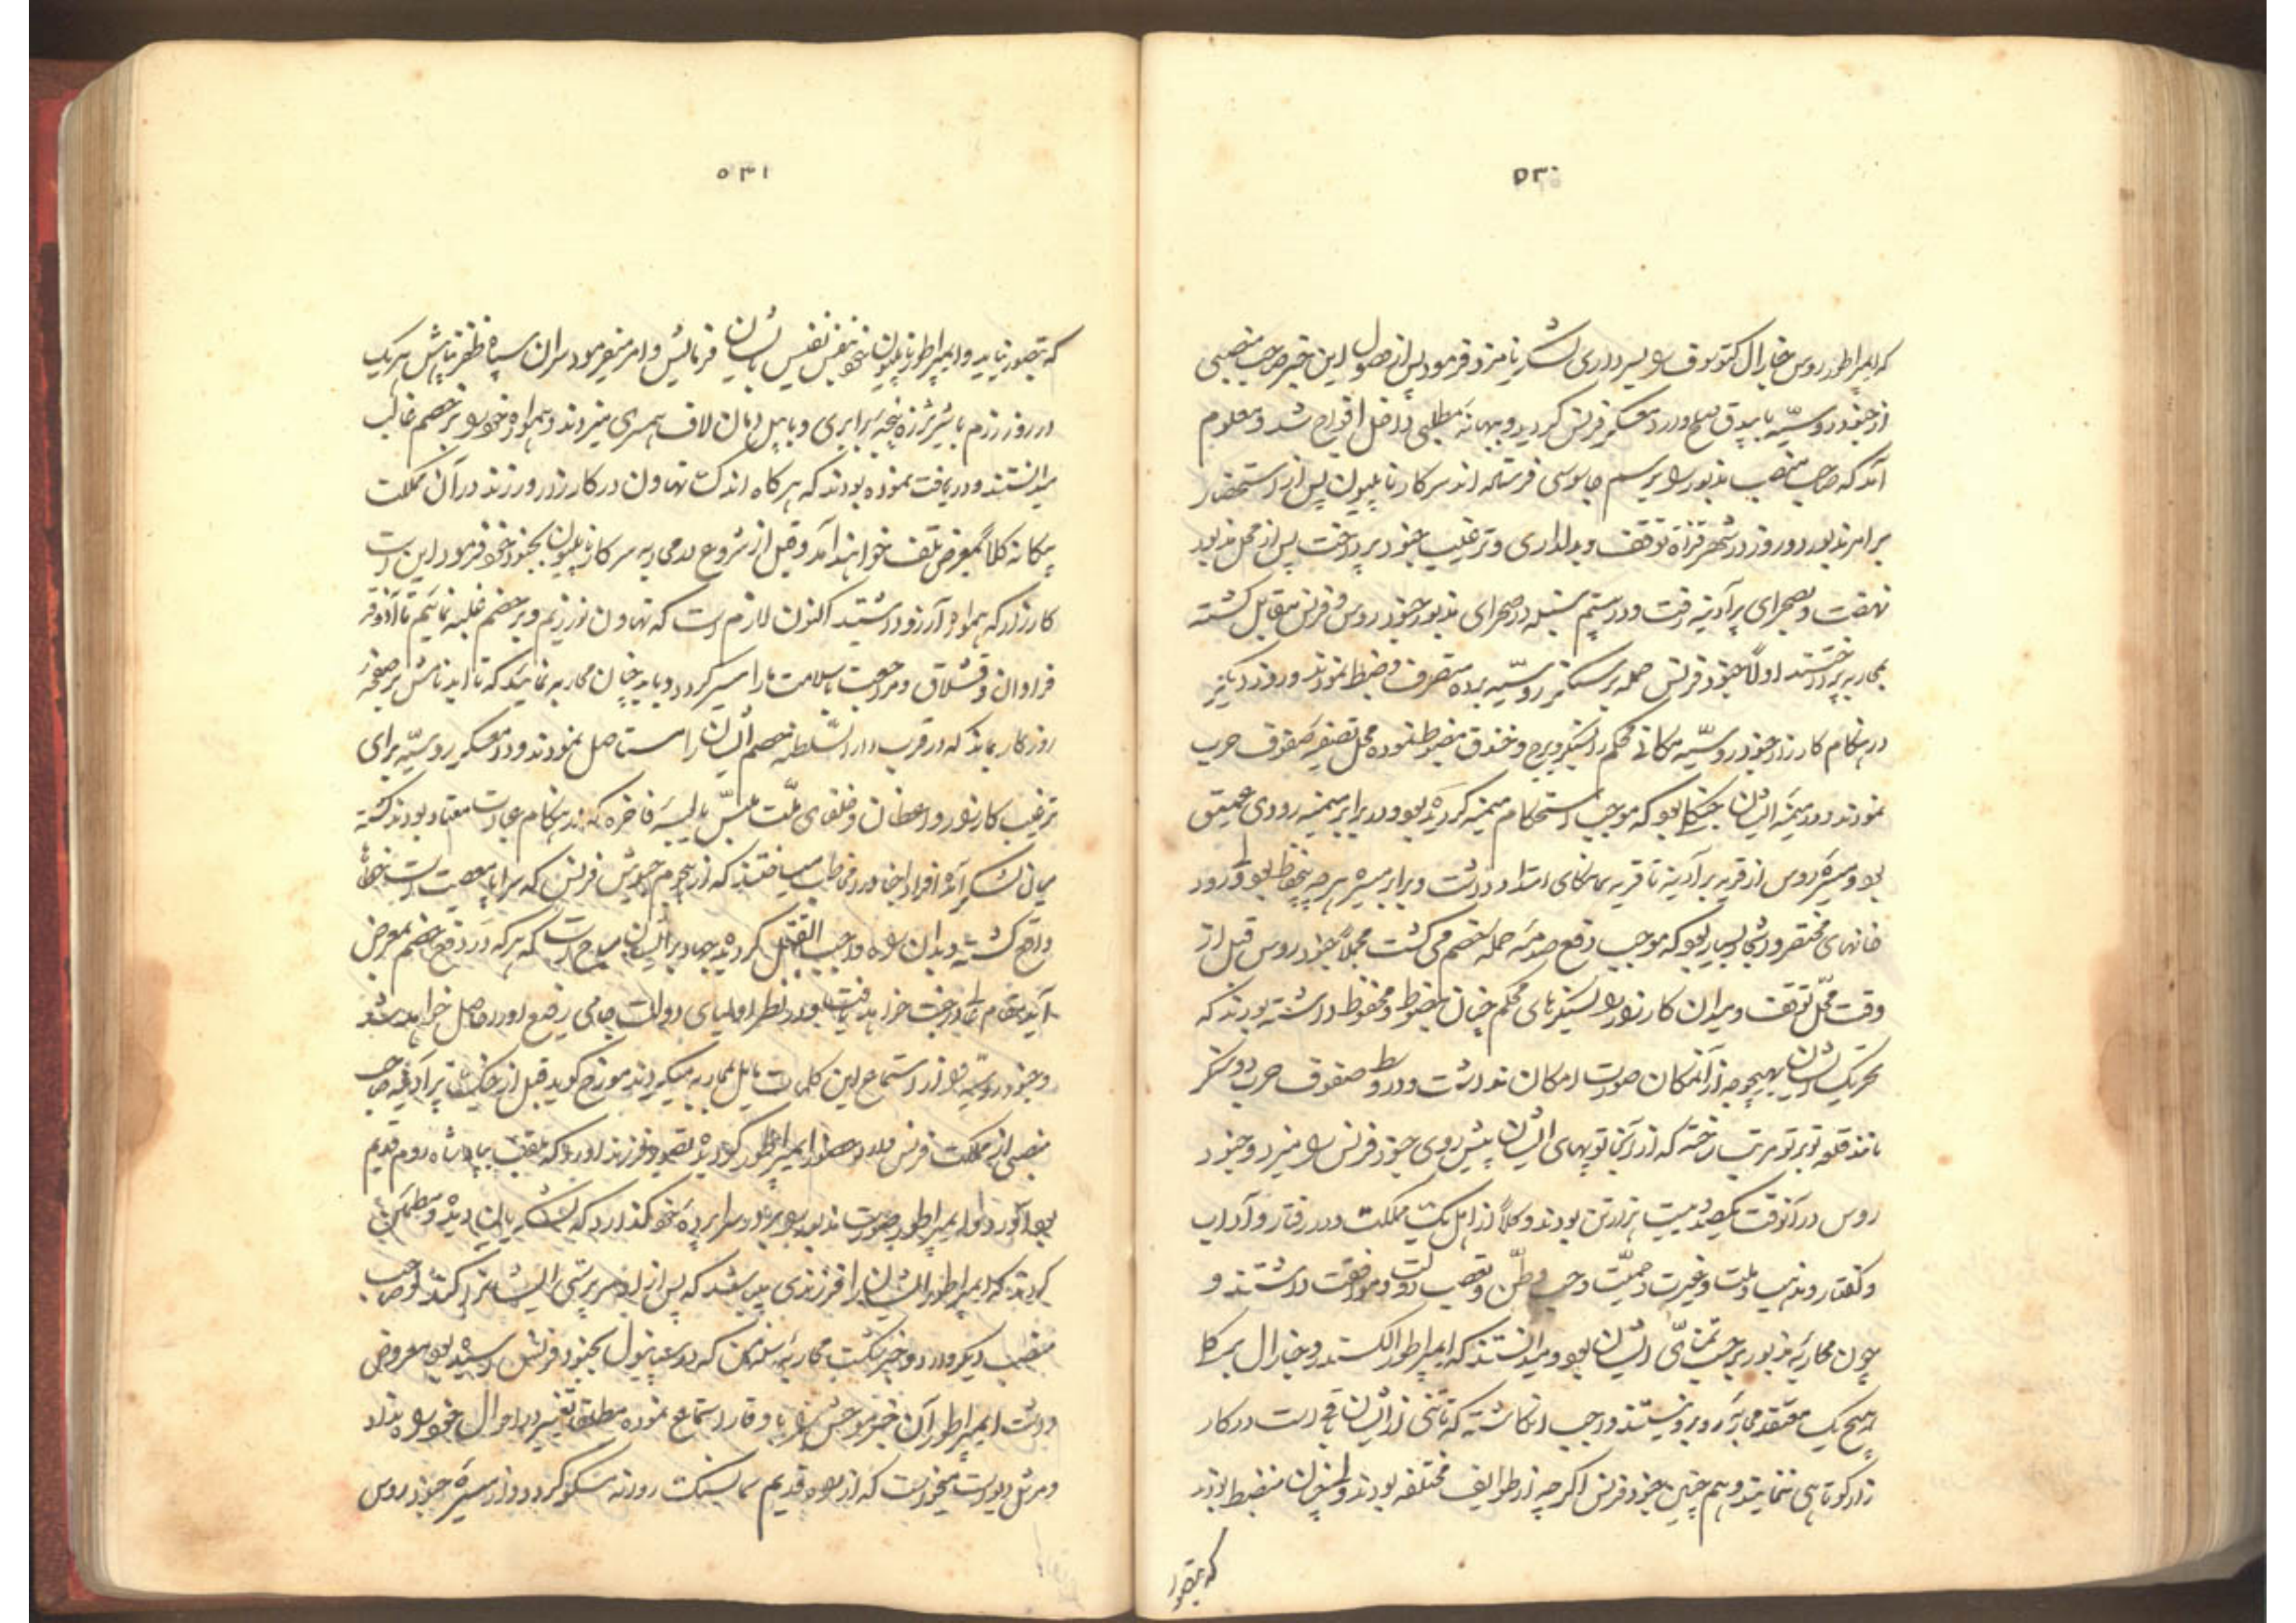 ۵۳۰
که ایمپراطور روس جنارال کتوزوف را بسرداری لشکر نامزد فرمود پس از حصول این خبر صاحب منصبی
از جنود روسیّه با بیدق صلح وارد معسکر فرنس گردید و ببهانه مطلبی داخل افواج شد و معلوم
آمد که صاحب منصب مذبور را برسم جاسوسی فرستاده اند سرکار ناپلیون پس از استحضار
بر امر مذبور دو روز در شهر قزاة توقف و بدلداری و ترغیب جنود پرداخت پس از محل مذبور
نهضت و بصحرای برآدینه رفت و در ستیم سنبله در صحرای مذبور جنود روس و فرنس مقابل گشته
بمحاربه پرداختند اولاً جنود فرنس حمله بر سنگر روسیّه برده متصرف و ضبط نمودند و روز دیگر
در هنگام کارزار جنود روسیّه مکانی محکم را سنگر و برج و خندق مضبوط نموده محل تصفیه صفوف حرب
نمودند و در میمنه ایشان جنگلی بود که موجب استحکام میمنه گردیده بود و در برابر میمنه رودی عمیق
بود و میسره روس از قریه برآدینه تا قریه سمانکای امتداد داشت و برابر میسره هر چه محفوظ بود و رود
خانهای مختصر و اشجار بسیار بود که موجب دفع صدمه حمله خصم می گشت مجملاً جنود روس قبل از
وقت محلّ توقف و میدان کارزار را بسنگرهای محکم چنان مضبوط و محفوظ داشته بودند که
تحریک ایشان بهیچوجه از آن مکان صورت امکان نداشت و در وسط صفوف حرب دو سنگر
مانند قلعه توبرتو مرتب ساخته که از آنجا توپهای ایشان پیش روی جنود فرنس را میزد و جنود
روس در آنوقت یکصد و بیست هزار تن بودند و کلاً از اهل یک مملکت و در رفتار و آداب
و گفتار و مذهب و ملت و غیرت و حمیّت و حب وطن و تعصب دولت و موافقت داشتند و
چون محاربه مذبور بر حسب تمنّای ایشان بود و میدانستند که ایمپراطور الکسندر و جنارال برکلا
هیچ یک معتقد محاربه روبرو نیستند واجب انگاشته که تا تنی از ایشان باقی است در کار
زار کوتاهی ننمایند و هم چنین جنود فرنس اگر چه از طوایف مختلفه بودند ولی چنان منضبط بودند
که بتصور
۵۳۱
که بتصور نیاید و ایمپراطور ناپلیون خود بنفس نفیس بایشان فرمایش و امر میفرمود سران سپاه ظفر پناهش هر یک
در روز رزم با شیر شرزه پنجه برابری و با پیل دمان لاف همسری میزدند و همواره خود را بر خصم غالب
میدانستند و دریافت نموده بودند که هر گاه اندک تهاون در کارزار ورزند در آن مملکت
بیگانه کلاً بمعرض تلف خواهند آمد و قبل از شروع بمحاربه سرکار ناپلیون بجنود خود فرمود این است
کارزار که همواره آرزو داشتید اکنون لازم است که تهاون نورزیم و بر خصم غلبه نمائیم تا آذوقه
فراوان و قشلاق و مراجعت با سلامت ما را میسر گردد و باید چنان محاربه نمائید که تا ابد نامش بر صفحه
روزگار بماند که در قرب دار السّلطنه خصم ایشان را مستاصل نمودند و در معسکر روسیّه برای
ترغیب کارزار واعظان و خلفای ملّت ملبّس بالبسه فاخره که در هنگام عبادت معتاد بودند گشته
میان لشکر آمده افراد اجناد را مخاطب میساختند که از هجوم جیوش فرنس که سراپا معصیت است خطا
واقع گشته و بدان سبب واجب القتل گردیده جهاد بر ایشان مباح است که هر که در دفع خصم بمعرض
آید مقام در جنت خواهد یافت و در نظر اولیای دولت جاهی رفیع او را حاصل خواهد شد
و جنود روسیّه از استماع این کلمات مایل بمحاربه میگردیدند مورخ گوید قبل از جنگ برآدینه صاحب
منصبی از مملکت فرنس وارد حضور ایمپراطور گردیده تصویر فرزند او را که ملقب بپادشاه روم قدیم
بود آورد و ایمپراطور صورت مذبور را بر در سراپرده خود گذارد که لشکریان دیده و مطمئن
گردند که ایمپراطور ایشان را فرزندی میباشد که پس از او سرپرستی ایشان تواند کند و صاحب
منصب دیگر وارد و خبر شکست محاربه سلمنکا که در سپانیول بجنود فرنس رسیده بود معروض
داشت ایمپراطور آن خبر موحش را با وقار استماع نموده مطلقا تغییر در احوال خود راه نداد
و مرشل دیووست میخواست که از راه قدیم سمالینسک روانه مسکو گردد و از میسره جنود روس